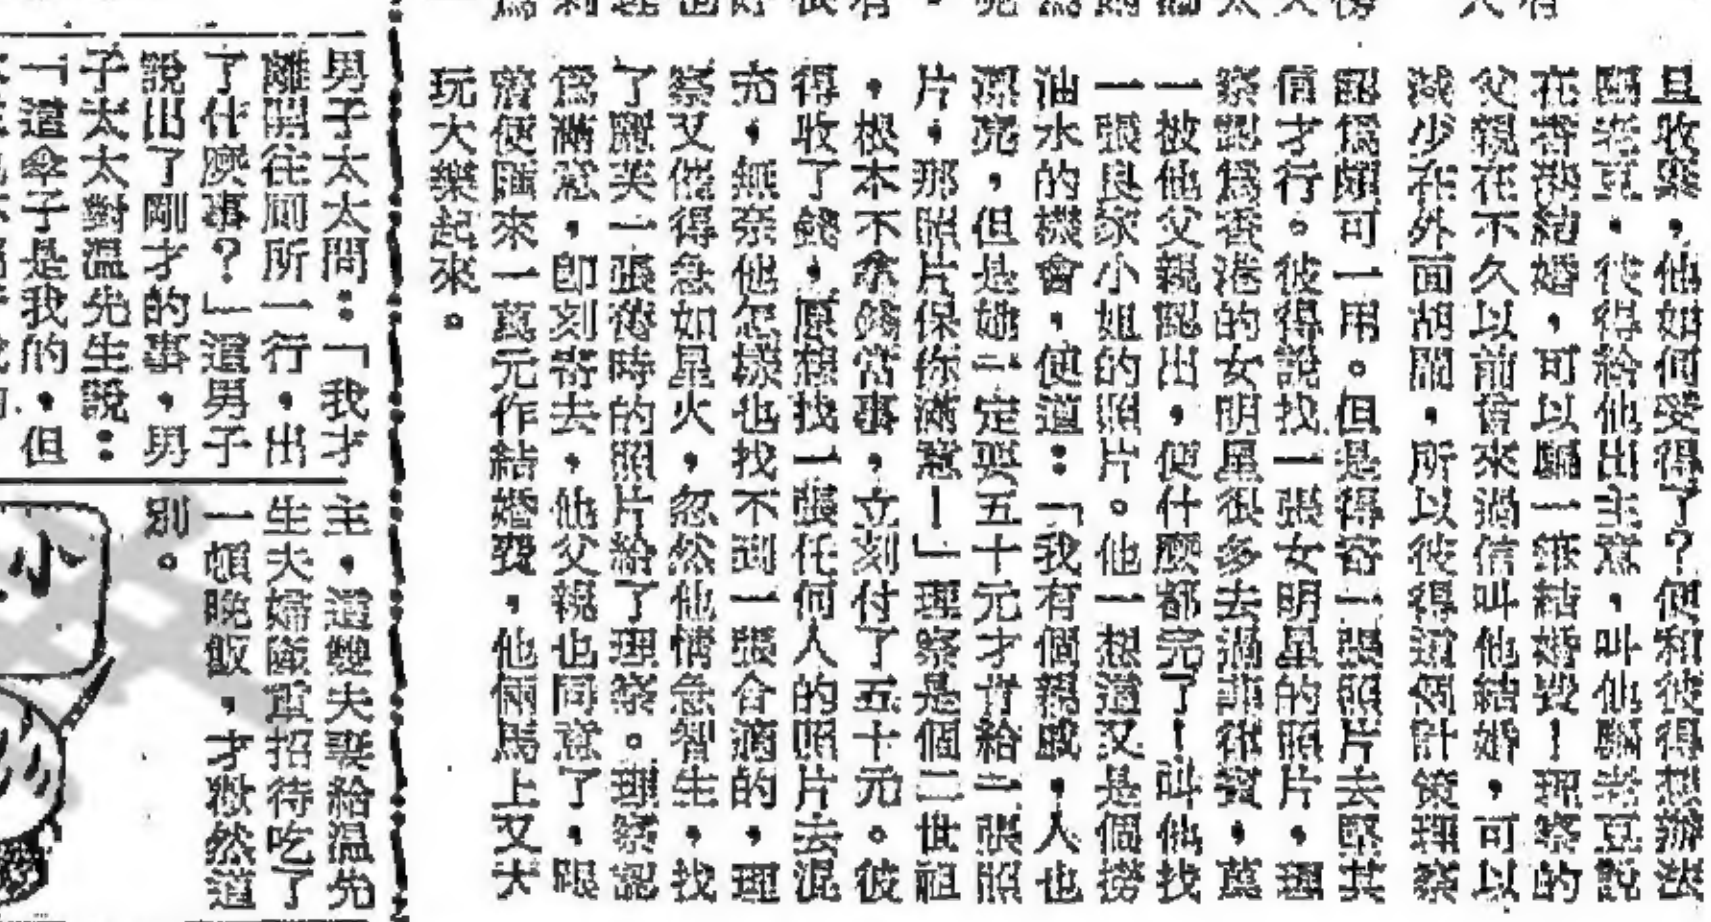 旦收緊，他如何受得了？便和彼得想辦法
騙老豆，彼得給他出主意，叫他騙老豆說
在香港結婚，可以騙一筆結婚費！理察的
父親在不久以前曾來過信叫他結婚，可以
減少在外面胡鬧，所以彼得這個計策理察
認為頗可一用。但是得寄一張照片去堅其
信才行。彼得說找一張女明星的照片，理
察認為香港的女明星很多去過菲律賓，萬
一被他父親認出，便什麼都完了！叫他找
一張良家小姐的照片。他一想這又是個撈
油水的機會，便道：「我有個親戚，人也
漂亮，但是她一定要五十元才肯給一張照
片，那照片保你滿意！」理察是個二世祖
，根本不拿錢當事，立刻付了五十元。彼
得收了錢，原想找一張任何人的照片去混
充，無奈他怎樣也找不到一張合適的，理
察又催得急如星火，忽然他情急智生，找
了麗芙一張舊時的照片給了理察。理察認
為滿意，即刻寄去，他父親也同意了，跟
著便匯來一萬元作結婚費，他倆馬上又大
玩大樂起來。
男子太太問：「我才
離開往厠所一行，出
了什麼事？」這男子
說出了剛才的事，男
子太太對溫先生說：
「這傘子是我的，但
主，這雙夫妻給溫先
生夫婦隆重招待吃了
一頓晚飯，才歡然道
別。
小